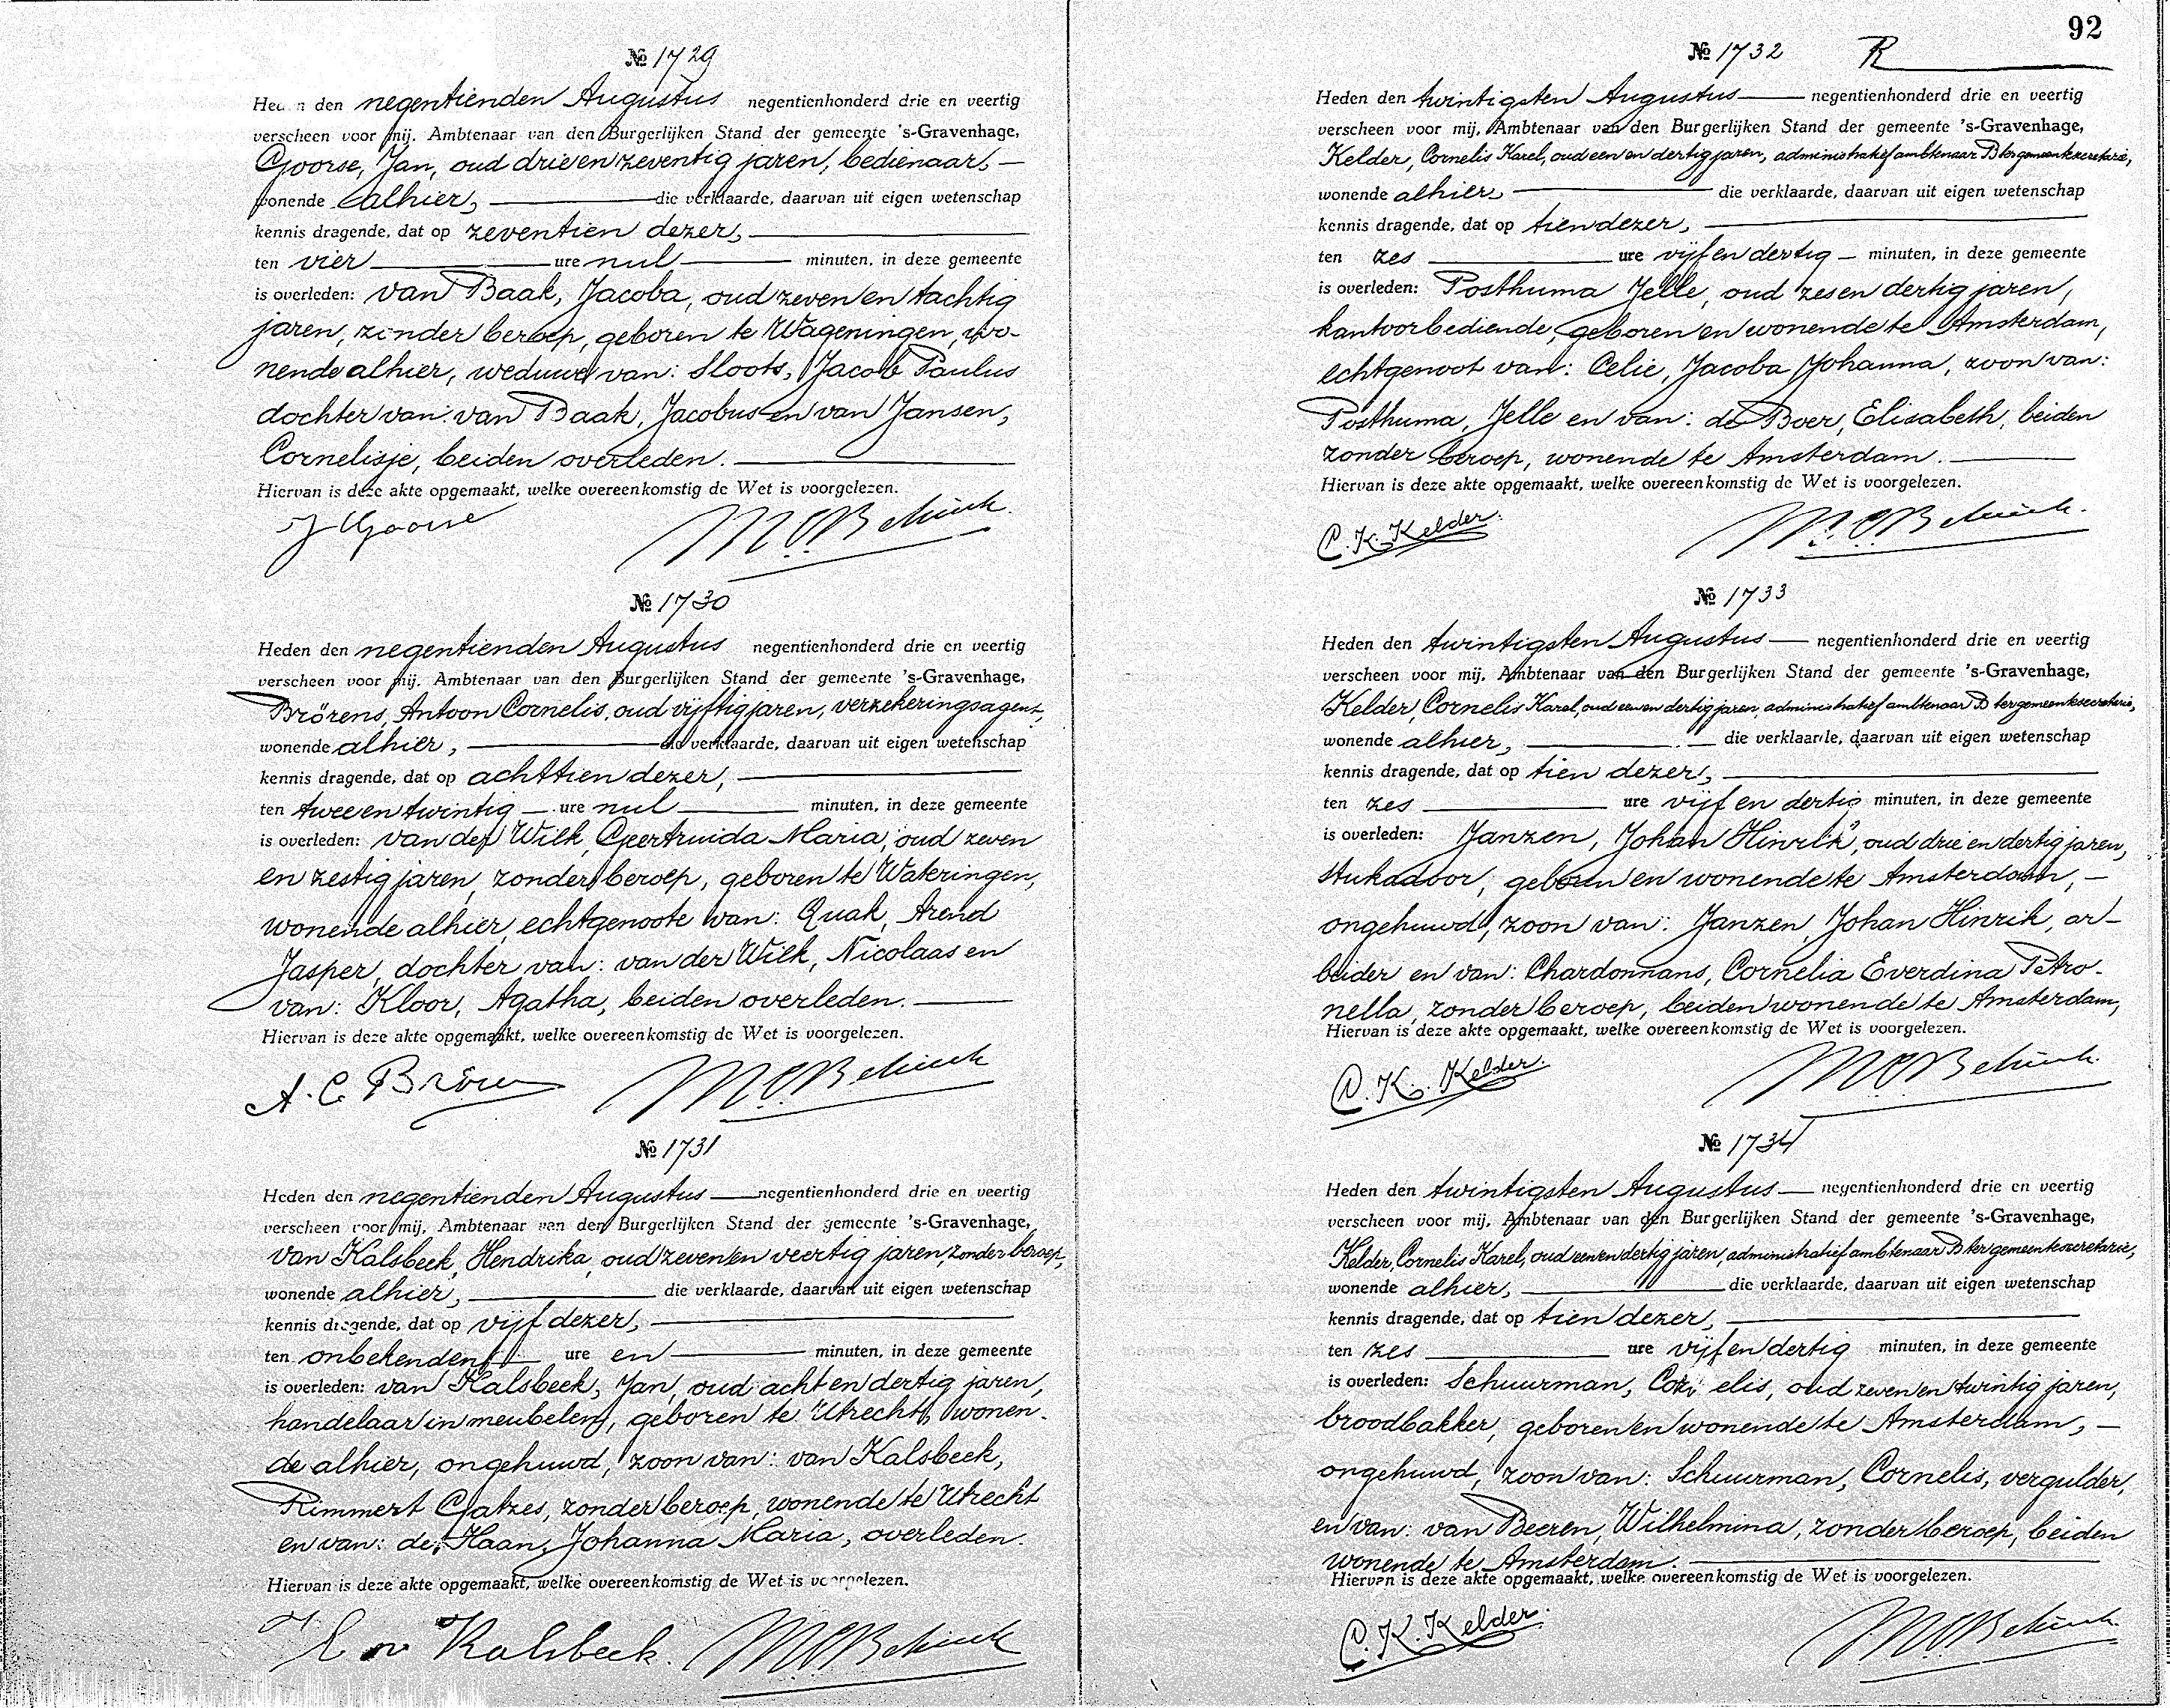 № 1729
Heden den negentienden Augustus negentienhonderd drie en veertig
verscheen voor mij. Ambtenaar van den Burgerlijken Stand der gemeente 's-Gravenhage,
Goorse, Jan, oud drieenzeventig jaren, bedienaar,
wonende alhier, die verklaarde, daarvan uit eigen wetenschap
kennis dragende, dat op zeventien dezer,
ten vier ure nul minuten, in deze gemeente
is overleden: van Baak, Jacoba, oud zeven en tachtig
jaren, zonder beroep, geboren te Wageningen, wo-
nende alhier, weduwe van: Sloots, Jacob Paulus
dochter van: van Baak, Jacobus en van Jansen,
Cornelisje, beiden overleden.
Hiervan is deze akte opgemaakt, welke overeenkomstig de Wet is voorgelezen.
J Goorse
№ 1730
Heden den negentienden Augustus negentienhonderd drie en veertig
verscheen voor mij. Ambtenaar van den Burgerlijken Stand der gemeente 's-Gravenhage,
Brörens, Antoon Cornelis, oud vijftig jaren, verzekeringsagent,
wonende alhier, die verklaarde, daarvan uit eigen wetenschap
kennis dragende, dat op achttien dezer,
ten tweeentwintig ure nul minuten, in deze gemeente
is overleden: van der Wilk, Geertruida Maria, oud zeven
en zestig jaren, zonder beroep, geboren te Wateringen,
wonende alhier, echtgenoote van: Quak, Arend
Jasper, dochter van: van der Wilk, Nicolaas en
van: Kloor, Agatha, beiden overleden.
Hiervan is deze akte opgemaakt, welke overeenkomstig de Wet is voorgelezen.
A. C.
№ 1731
Heden den negentienden Augustus negentienhonderd drie en veertig
verscheen voor mij. Ambtenaar van den Burgerlijken Stand der gemeente 's-Gravenhage,
van Kalsbeek, Hendrika, oud zeven en veertig jaren, zonder beroep,
wonende alhier, die verklaarde, daarvan uit eigen wetenschap
kennis dragende, dat op vijf dezer,
ten onbekenden ure en minuten, in deze gemeente
is overleden: van Kalsbeek, Jan, oud acht en dertig jaren,
handelaar in meubelen, geboren te Utrecht, wonen-
de alhier, ongehuwd, zoon van: van Kalsbeek,
Rimmert Gatzes, zonder beroep, wonende te Utrecht
en van: de Haan, Johanna Maria, overleden.
Hiervan is deze akte opgemaakt, welke overeenkomstig de Wet is voorgelezen.
H v Kalsbeek.
92
№ 1732 R
Heden den twintigsten Augustus negentienhonderd drie en veertig
verscheen voor mij, Ambtenaar van den Burgerlijken Stand der gemeente 's-Gravenhage,
Kelder, Cornelis Karel, oud een en dertig jaren, administratief ambtenaar B ter gemeentesecretarie,
wonende alhier, die verklaarde, daarvan uit eigen wetenschap
kennis dragende, dat op tien dezer,
ten zes ure vijf en dertig minuten, in deze gemeente
is overleden: Posthuma Jelle, oud zes en dertig jaren,
kantoorbediende, geboren en wonende te Amsterdam,
echtgenoot van: Celie, Jacoba Johanna, zoon van:
Posthuma, Jelle en van: de Boer, Elisabeth, beiden
zonder beroep, wonende te Amsterdam.
Hiervan is deze akte opgemaakt, welke overeenkomstig de Wet is voorgelezen.
C. K. Kelder.
№ 1733
Heden den twintigsten Augustus negentienhonderd drie en veertig
verscheen voor mij, Ambtenaar van den Burgerlijken Stand der gemeente 's-Gravenhage,
Kelder, Cornelis Karel, oud een en dertig jaren, administratief ambtenaar B ter gemeentesecretarie,
wonende alhier, die verklaarde, daarvan uit eigen wetenschap
kennis dragende, dat op tien dezer,
ten zes ure vijf en dertig minuten, in deze gemeente
is overleden: Janzen, Johan Hinrik, oud drie en dertig jaren,
stukadoor, geboren en wonende te Amsterdam,
ongehuwd, zoon van: Janzen, Johan Hinrik, ar-
beider en van: Chardonnans, Cornelia Everdina Petro-
nella, zonder beroep, beiden wonende te Amsterdam,
Hiervan is deze akte opgemaakt, welke overeenkomstig de Wet is voorgelezen.
C. K. Kelder.
№ 1734
Heden den twintigsten Augustus negentienhonderd drie en veertig
verscheen voor mij, Ambtenaar van den Burgerlijken Stand der gemeente 's-Gravenhage,
Kelder, Cornelis Karel, oud een en dertig jaren, administratief ambtenaar B ter gemeentesecretarie,
wonende alhier, die verklaarde, daarvan uit eigen wetenschap
kennis dragende, dat op tien dezer,
ten zes ure vijf en dertig minuten, in deze gemeente
is overleden: Schuurman, Cornelis, oud zeven en twintig jaren,
broodbakker, geboren en wonende te Amsterdam,
ongehuwd, zoon van: Schuurman, Cornelis, vergulder,
en van: van Beeren, Wilhelmina, zonder beroep, beiden
wonende te Amsterdam.
Hiervan is deze akte opgemaakt, welke overeenkomstig de Wet is voorgelezen.
C. K. Kelder.